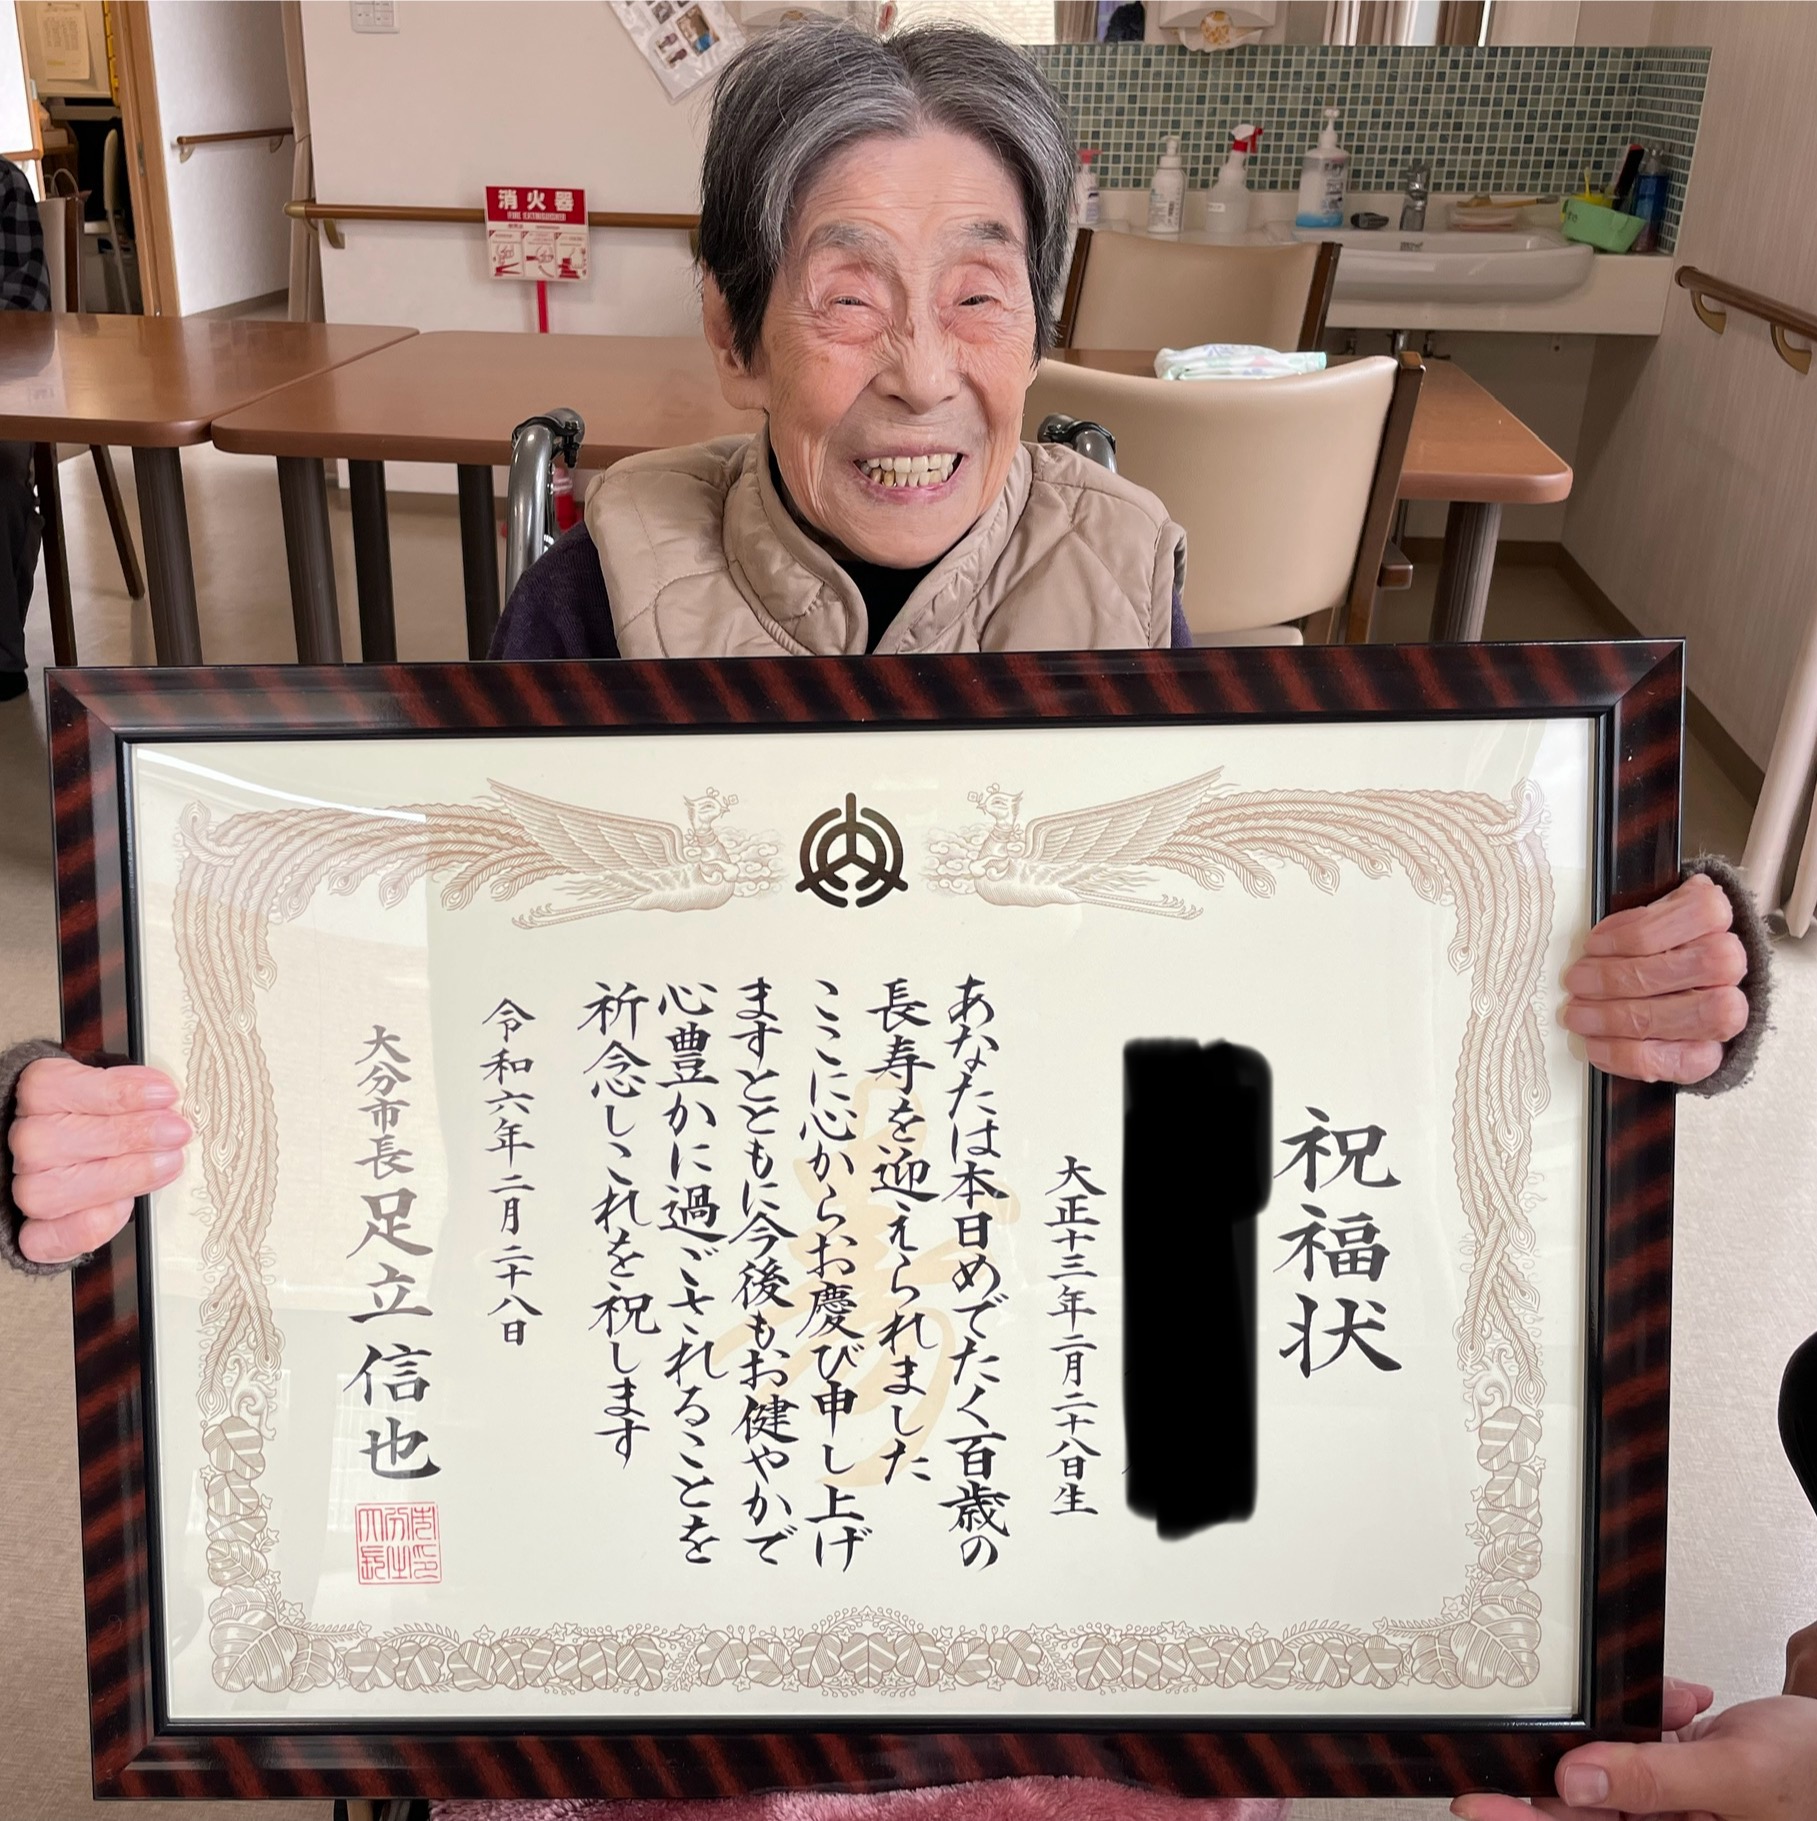 消火器
FIRE EXTINGUISHER
祝福状
大正十三年二月二十八日生
あなたは本日めでたく百歳の
長寿を迎えられました
ここに心からお慶び申し上げ
ますとともに今後もお健やかで
心豊かに過ごされることを
祈念しこれを祝します
令和六年二月二十八日
大分市長 足立信也
寿